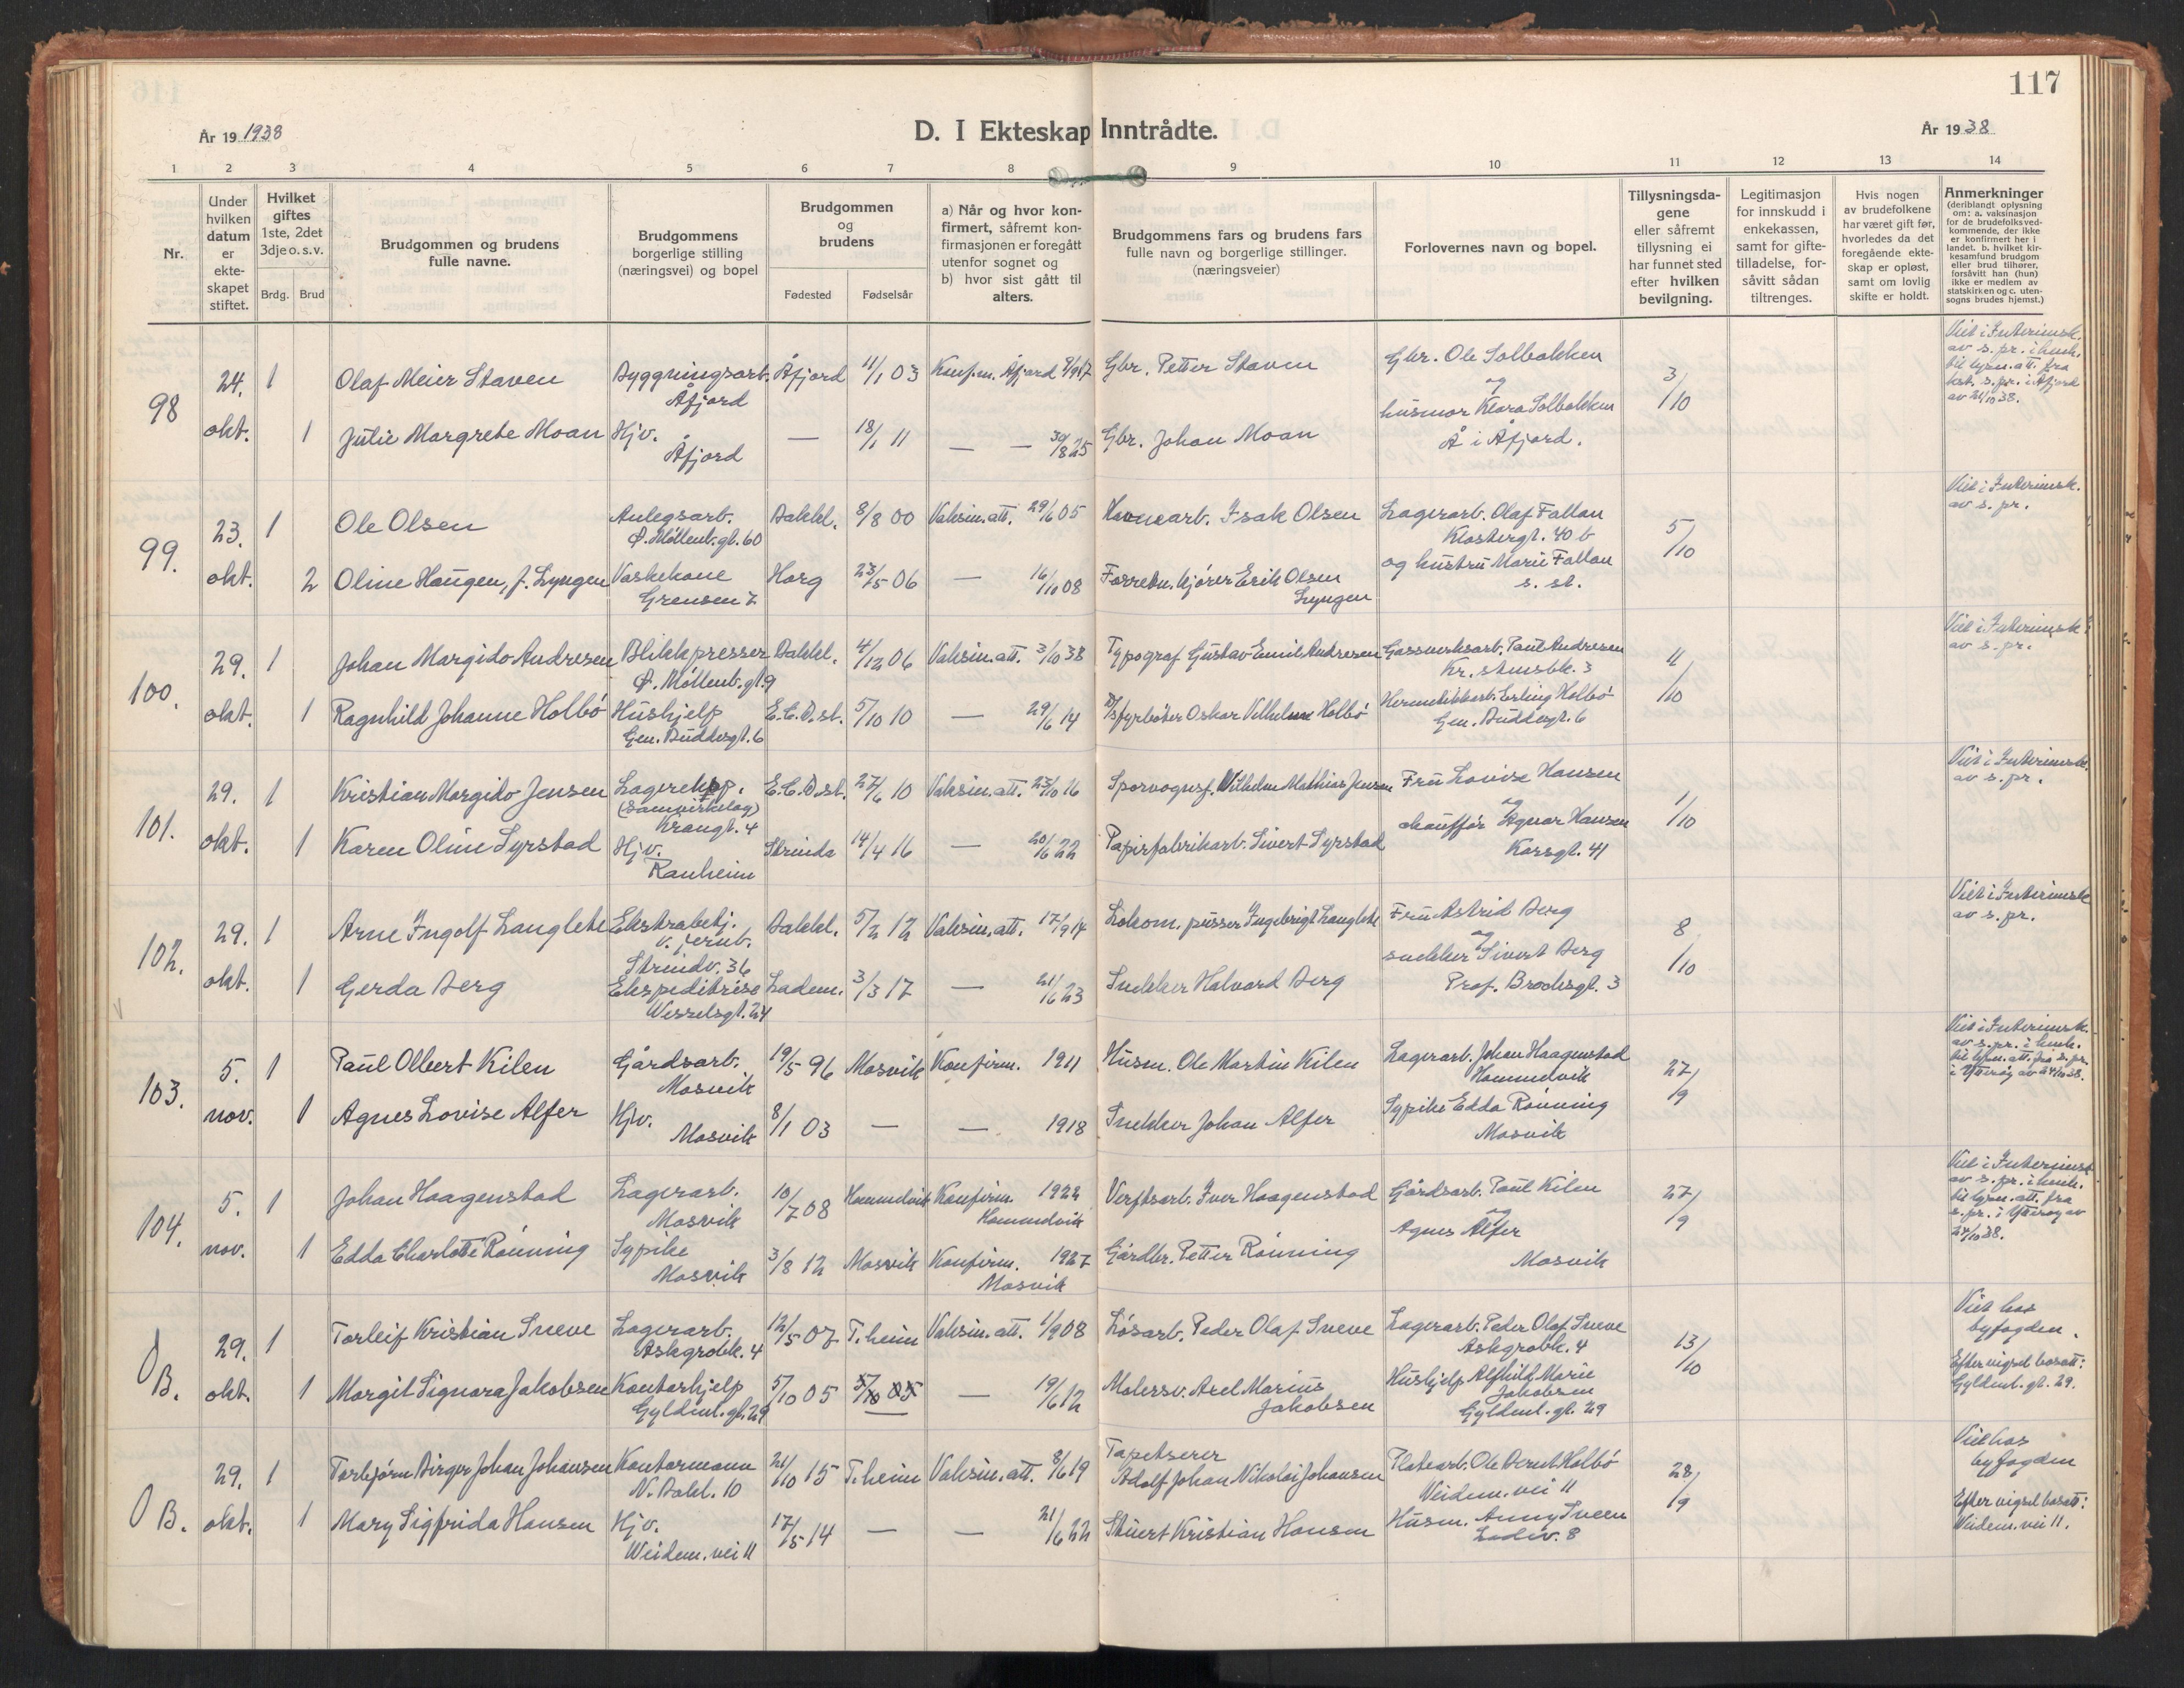 117
År 19 1938
D. I Ekteskap Inntrådte.
År 19 38
1 2 3 4 5 6 7 8 9 10 11 12 13 14
Nr.
Under hvilken datum er ekte-skapet stiftet.
Hvilket giftes 1ste, 2det 3dje o. s. v.
Brdg. Brud
Brudgommen og brudens fulle navne.
Brudgommens borgerlige stilling (næringsvei) og bopel
Brudgommen og brudens
Fødested Fødselsår
a) Når og hvor kon-firmert, såfremt kon-firmasjonen er foregått utenfor sognet og
b) hvor sist gått til alters.
Brudgommens fars og brudens fars fulle navn og borgerlige stillinger. (næringsveier)
Forlovernes navn og bopel.
Tillysningsda-gene eller såfremt tillysning ei har funnet sted efter hvilken bevilgning.
Legitimasjon for innskudd i enkekassen, samt for gifte-tilladelse, for-såvitt sådan tiltrenges.
Hvis nogen av brudefolkene har været gift før, hvorledes da det foregående ekte-skap er opløst, samt om lovlig skifte er holdt.
Anmerkninger (deriblandt oplysning om: a. vaksinasjon for de brudefolksved-kommende, der ikke er konfirmert her i landet. b. hvilket kir-kesamfund brudgom eller brud tilhører, forsåvitt han (hun) ikke er medlem av statskirken og c. uten-sogns brudes hjemst.)
98 24. okt. 1 Olaf Meier Staven Byggningsarb. Åfjord Åfjord 11/1 03 Konf. m. Åfjord 9/9 17 Gbr. Petter Staven Gbr. Ole Solbakken og husmor Klara Solbakken Å i Åfjord. 3/10 Viet i Interimsk. av s. pr. i henh. til lysn. att. fra best. s. pr. i Åfjord av 21/10 38.
1 Julie Margrete Moan Hjv. Åfjord — 18/1 11 — — 30/8 25 Gbr. Johan Moan
99. 23. okt. 1 Ole Olsen Anlegsarb. Ø. Møllenb. gt. 60 Bakkl. 8/8 00 Vaksin. att. 29/6 05 Havnearb. Isak Olsen Lagerarb. Olaf Fallan Klostergt. 40 b og hustru Marie Fallan s. st. 5/10 Viet i Interimsk. av s. pr.
2 Oline Haugen, f. Lyngen Vaskekone Grensen 7 Horg 23/5 06 — 16/10 08 Forretn. kjører Erik Olsen Lyngen
100. 29. okt. 1 Johan Margido Andresen Blikkpresser Ø. Møllenb. gt. 9 Bakkl. 4/12 06 Vaksin. att. 3/10 38 Typograf Gustav Emil Andresen Gassverksarb. Paul Andresen Kr. stensbk. 3 4/10 Viet i Interimsk. av s. pr.
1 Ragnhild Johanne Holbø Hushjelp Gen. Buddesgt. 6 E. C. D. st. 5/10 10 — 29/6 14 D/S fyrbøter Oskar Vilhelm Holbø Hermetikkarb. Erling Holbø Gen. Buddesgt. 6
101. 29. okt. 1 Kristian Margido Jensen Lagereksp. (Samvirkelag) Krangt. 4 E. C. D. st. 27/6 10 Vaksin. att. 23/10 16 Sporvognsf. Vilhelm Mathias Jensen Fru Lovise Hansen og chauffør Agnar Hansen Korsgt. 41 1/10 Viet i Interimsk. av s. pr.
1 Karen Oline Syrstad Hjv. Ranheim Strinda 14/4 16 — 20/6 22 Papirfabrikarb. Sivert Syrstad
102. 29. okt. 1 Arne Ingolf Langlete Ekstrabetj. v. jernb. Strindv. 36 Bakkl. 5/2 12 Vaksin. att. 17/9 14 Lokom. pusser Ingebrigt Langlete Fru Astrid Berg og snekker Sivert Berg Prof. Brochsgt. 3 8/10 Viet i Interimsk av s. pr.
1 Gerda Berg Ekspeditrise Wesselsgt. 24 Ladem. 3/3 17 — 21/6 23 Snekker Halvard Berg
103. 5. nov. 1 Paul Olbert Kilen Gårdsarb. Mosvik 19/5 96 Mosvik Konfirm. 1911 Husm. Ole Martin Kilen Lagerarb. Johan Haagenstad Hommelvik Sypike Edda Rønning Mosvik 27/9 Viet i Interimsk. av s. pr. i henh. til lysn. att. fra s. pr. i Ytterøy av 24/10 38.
1 Agnes Lovise Alfer Hjv. Mosvik 8/1 03 — — 1918 Snekker Johan Alfer
104. 5. nov. 1 Johan Haagenstad Lagerarb. Mosvik 10/7 08 Hommelvik Konfirm. 1922 Hommelvik Verftsarb. Iver Haagenstad Gårdsarb. Paul Kilen og Agnes Alfer Mosvik 27/9 Viet i Interimsk av s. pr. i henh. til lysn. att. fra s. pr. i Ytterøy av 24/10 38.
1 Edda Charlotte Rønning Sypike Mosvik 3/8 12 Mosvik Konfirm. 1927 Mosvik Gårdbr. Petter Rønning
B. 29. okt. 1 Torleif Kristian Sneve Lagerarb. Askgrobk. 4 12/5 07 T.heim Vaksin. att. 1/9 08 Løsarb. Peder Olaf Sneve Lagerarb. Peder Olaf Sneve Askgrobk. 4 Hushjelp Alfhild Marie Jakobsen Gyldenl. gt. 29 13/10 Viet hos byfogden. Efter vigsel bosatt: Gyldenl. gt. 29.
1 Margit Signora Jakobsen Kontorhjelp Gyldenl. gt. 29 5/10 05 5/10 05 — 19/6 12 Malersv. Axel Marius Jakobsen
B. 29. okt. 1 Torbjørn Birger Johan Johansen Kontormann N. Bakl. 10 24/10 15 T.heim Vaksin. att. 8/6 19 Tapetserer Adolf Johan Nikolai Johansen Platearb. Ole Bernt Holbø Weidem. vei 11 Husm. Anny Sveen Ladev. 8 28/9 Viet hos byfogden Efter vigsel bosatt: Weidem. vei 11.
1 Mary Sigfrida Hansen Hjv. Weidem. vei 11 17/5 14 — — 21/6 22 Stuert Kristian Hansen